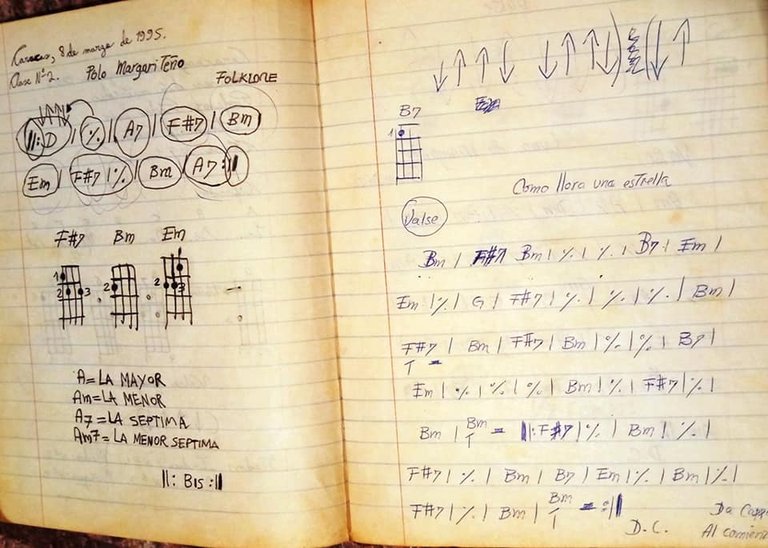 Caracas, 8 de marzo de 1995.
Clase Nº 2. Polo MargariTeño
FOLKLORE
||: D | % | A7 | F#7 | Bm
Em | F#7 | % | Bm | A7 :||
F#7 Bm Em
1
2 3 2 2
A = LA MAYOR
Am = LA MENOR
A7 = LA SEPTIMA
Am7 = LA MENOR SEPTIMA
||: Bis :||
B7
1
Como llora una estrella
Valse
Bm | F#7 Bm | % | % | B7 | Em |
Em | % | G | F#7 | % | % | % | Bm |
F#7 | Bm | F#7 | Bm | % | % | B7 |
T =
Em | % | % | % | Bm | % | F#7 | % |
Bm | Bm = ||: F#7 | % | Bm | % |
T
F#7 | % | Bm | B7 | Em | % | Bm | % |
F#7 | % | Bm | Bm = :||
T
D.C. Da Capp
Al comienz